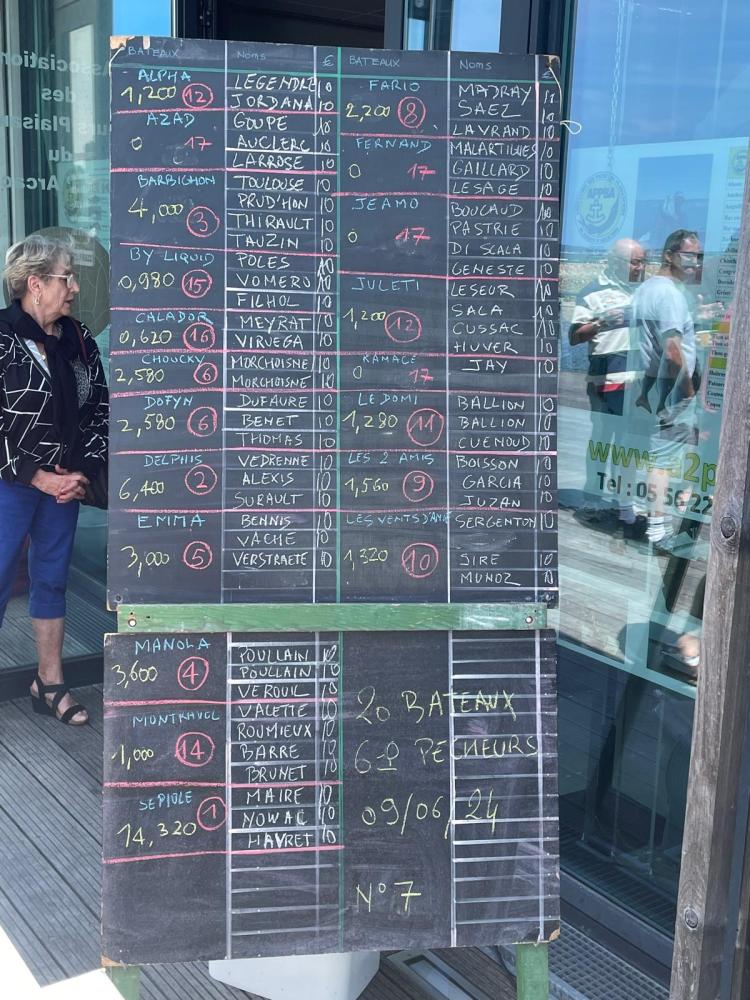 BATEAUX NOMS €
ALPHA
1,200 12
LEGENDRE 10
JORDANA 10
AZAD
0 17
GOUPE 10
AUCLERC 10
LARROSE 10
BARBICHON
4,000 3
TOULOUSE 10
PRUD'HON 10
THIRAULT 10
TAUZIN 10
BY LIQUID
0,980 15
POLES 10
VOMERO 10
FILHOL 10
CALADOR
0,620 16
MEYRAT 10
VIRUEGA 10
CHOUCKY
2,580 6
MORCHOISNE 10
MORCHOISNE 10
DOFYN
2,580 6
DUFAURE 10
BENET 10
THOMAS 10
DELPHIS
6,400 2
VEDRENNE 10
ALEXIS 10
SURAULT 10
EMMA
3,000 5
BENNIS 10
VACHE 10
VERSTRAETE 10
BATEAUX NOMS €
FARIO
2,200 8
MADRAY
SAEZ 10
LAVRAND 10
FERNAND
0 17
MALARTIGUES 10
GAILLARD 10
LESAGE 10
JEAMO
0 17
BOUCAUD 10
PASTRIE 10
DI SCALA 10
GENESTE 10
JULETI
1,200 12
LESEUR 10
SALA 10
CUSSAC 10
HUVER 10
KAMACE
0 17
JAY 10
LE DOMI
1,280 11
BALLION 10
BALLION 10
CUENOUD 10
LES 2 AMIS
1,560 9
BOISSON 10
GARCIA 10
JUZAN 10
LES VENTS D'ANGE
1,320 10
SERGENTON 10
SIRE 10
MUNOZ 10
MANOLA
3,600 4
POULLAIN 10
POULLAIN 10
VEROUIL 10
MONTRAVEL
1,000 14
VALETTE 10
ROUMIEUX 10
BARRE 10
BRUNET 10
SEPIOLE
14,320 1
MAIRE 10
NOWAC 10
HAVRET 10
20 BATEAUX
60 PECHEURS
09/06/24
N° 7
www.a2p
Tel : 05 56 22